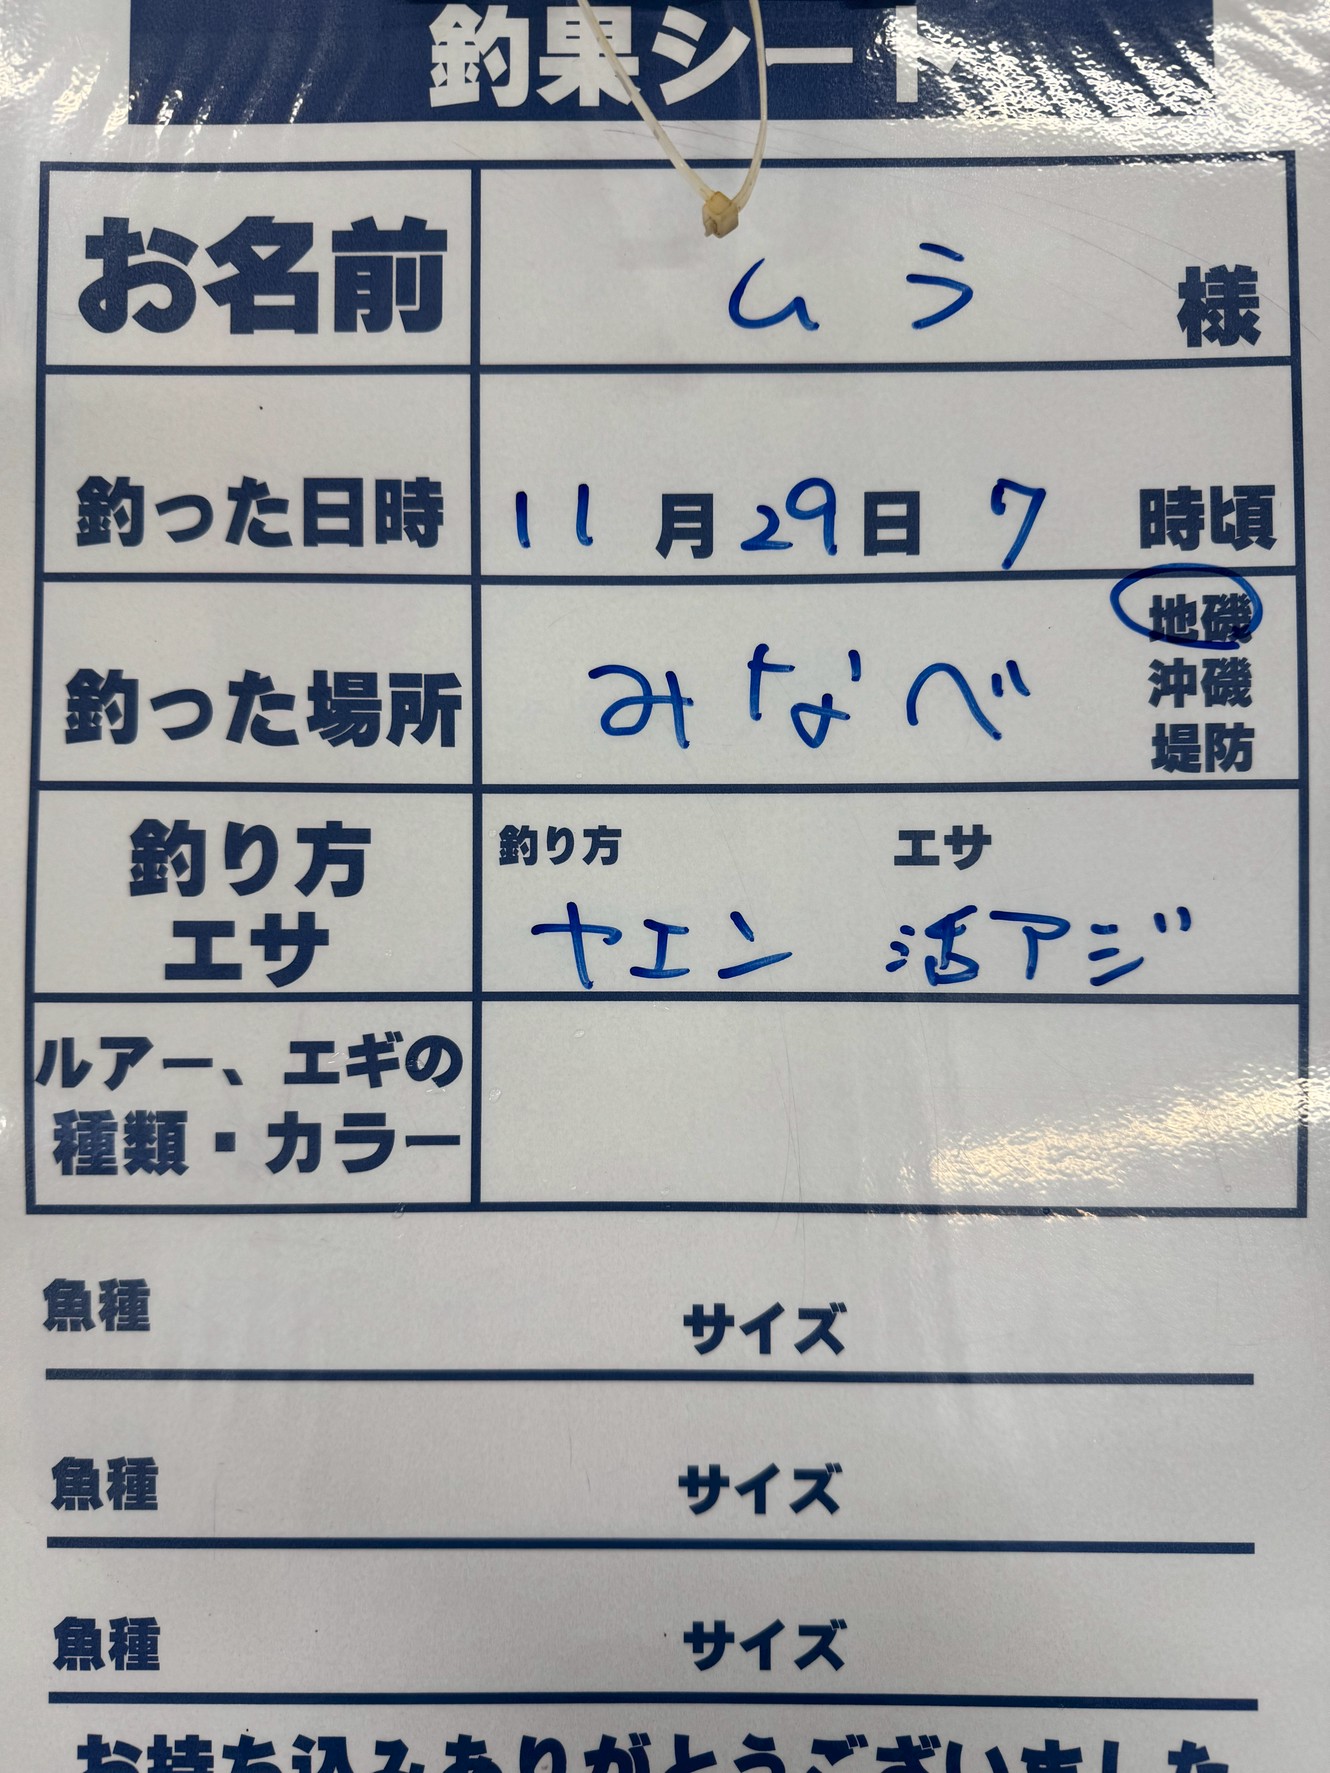 釣果シート
お名前 ムラ 様
釣った日時 11月29日 7時頃
釣った場所 みなべ 地磯
沖磯
堤防
釣り方 エサ
釣り方 エサ
ヤエン 活アジ
ルアー、エギの
種類・カラー
魚種 サイズ
魚種 サイズ
魚種 サイズ
お持ち込みありがとうございました